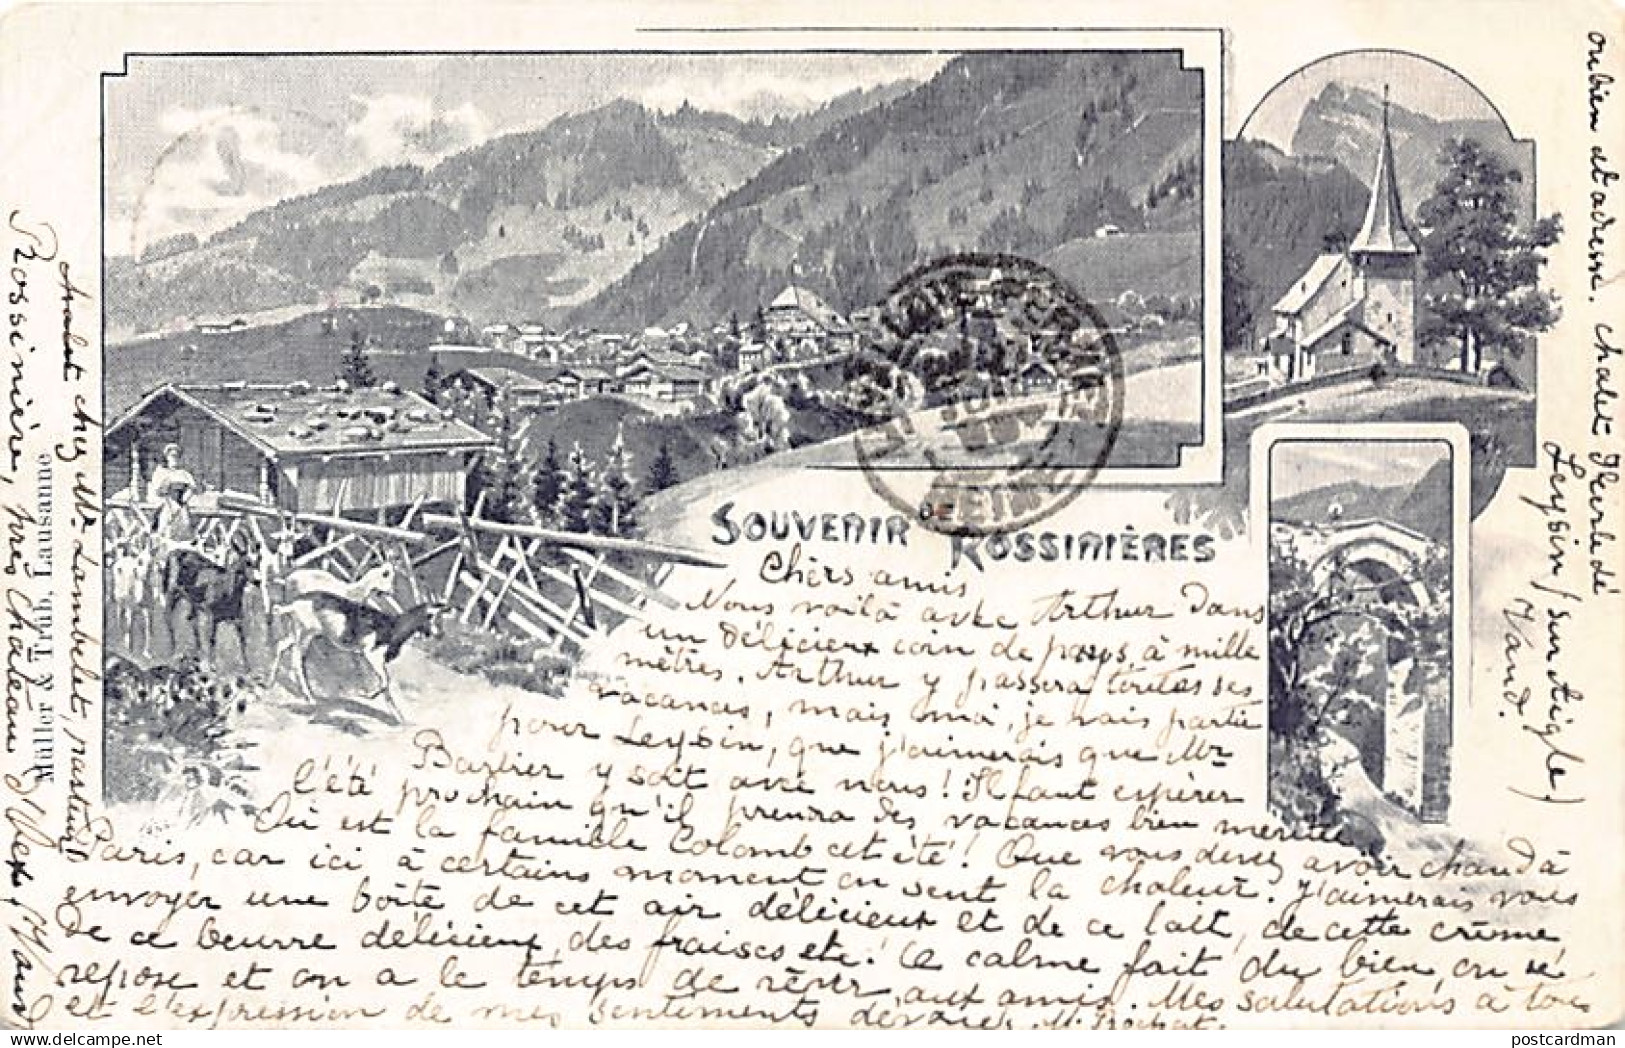 SOUVENIR DE ROSSINIÈRES
Chers amis
Nous voilà avec Arthur dans
un délicieux coin de pays, à mille
mètres. Arthur y passera toutes ses
vacances, mais moi, je vais partie
pour Leysin, que j'aimerais que Mr
y soit avec nous! Il faut espérer
l'été prochain qu'il prendra des vacances bien méritées
Où est la famille Colomb cet été! Que vous devez avoir chaud à
Paris, car ici à certains moment on sent la chaleur. J'aimerais vous
envoyer une boîte de cet air délicieux et de ce lait, de cette crème
de ce beurre délicieux, des fraises etc! Ce calme fait du bien, on se
repose et on a le temps de rêver aux amis. Mes salutations à tous
et l'expression de mes sentiments dévoués. M. Rochat.
chalet chez Mr Lambelet, pasteur
Rossinière, près Château d'Oex, Vaud
Muller & Trüb, Lausanne
ou bien et adresse. chalet
Leysin (sur Aigle)
Vaud.
postcardman